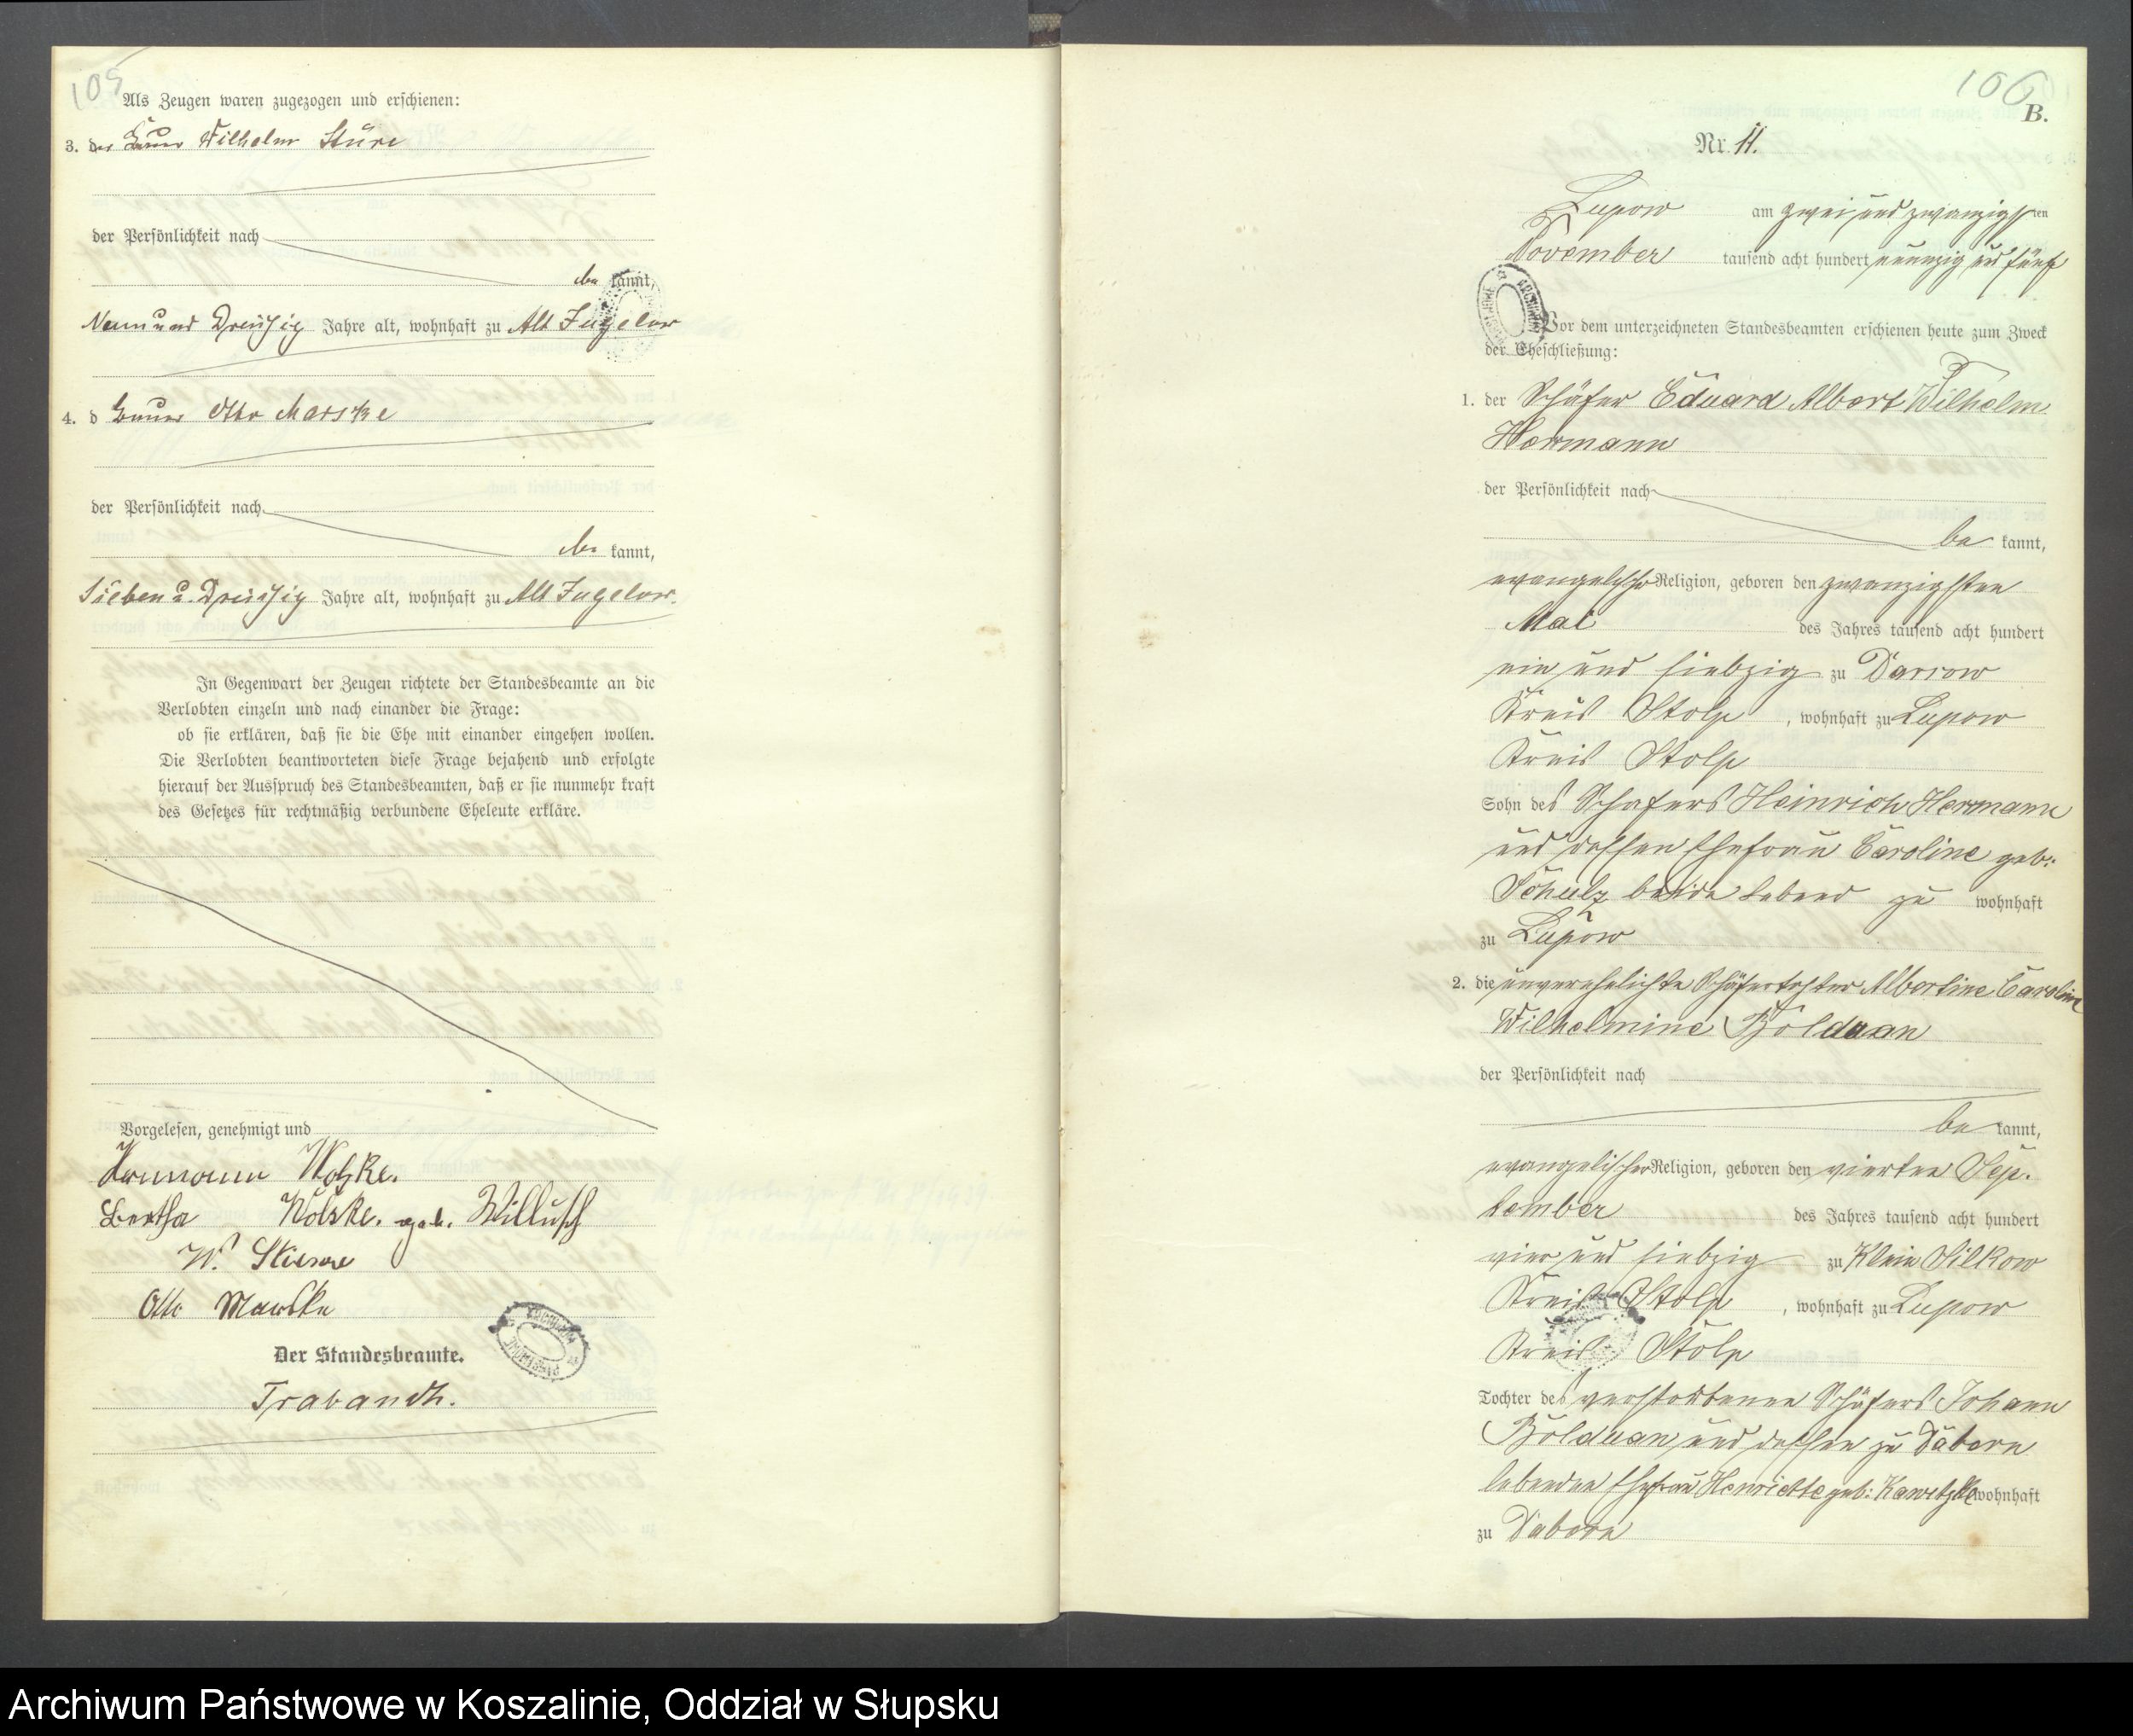 105
Als Zeugen waren zugezogen und erschienen:
3. der Bauer Wilhelm Stüve
der Persönlichkeit nach
be kannt,
Neun und Dreißig Jahre alt, wohnhaft zu Alt Jugelow
4. d Bauer Otto Marske
der Persönlichkeit nach
be kannt,
Sieben u. Dreißig Jahre alt, wohnhaft zu Alt Jugelow.
In Gegenwart der Zeugen richtete der Standesbeamte an die
Verlobten einzeln und nach einander die Frage:
ob sie erklären, daß sie die Ehe mit einander eingehen wollen.
Die Verlobten beantworteten diese Frage bejahend und erfolgte
hierauf der Ausspruch des Standesbeamten, daß er sie nunmehr kraft
des Gesetzes für rechtmäßig verbundene Eheleute erkläre.
Vorgelesen, genehmigt und
Hermann Wolske.
Bertha Wolske. geb. Willusch
W. Stüwe
Otto Marske
Der Standesbeamte.
Trabandt.
106
B.
Nr. 11.
Lupow am zwei und zwanzigsten
November tausend acht hundert neunzig und fünf
Vor dem unterzeichneten Standesbeamten erschienen heute zum Zweck
der Eheschließung:
1. der Schäfer Eduard Albert Wilhelm
Hermann
der Persönlichkeit nach
be kannt,
evangelischer Religion, geboren den zwanzigsten
Mai des Jahres tausend acht hundert
ein und siebzig zu Darsow
Kreis Stolp, wohnhaft zu Lupow
Kreis Stolp
Sohn des Schäfers Heinrich Hermann
und dessen Ehefrau Caroline geb:
Schulz beide lebend zu wohnhaft
zu Lupow
2. die unverehelichte Schäfertochter Albertine Caroline
Wilhelmine Bolduan
der Persönlichkeit nach
be kannt,
evangelischer Religion, geboren den vierten Sep-
tember des Jahres tausend acht hundert
vier und siebzig zu Klein Silkow
Kreis Stolp, wohnhaft zu Lupow
Kreis Stolp
Tochter des verstorbenen Schäfers Johann
Bolduan und dessen zu Dabern
lebenden Ehefrau Henriette geb: wohnhaft
zu Dabern
Archiwum Państwowe w Koszalinie, Oddział w Słupsku